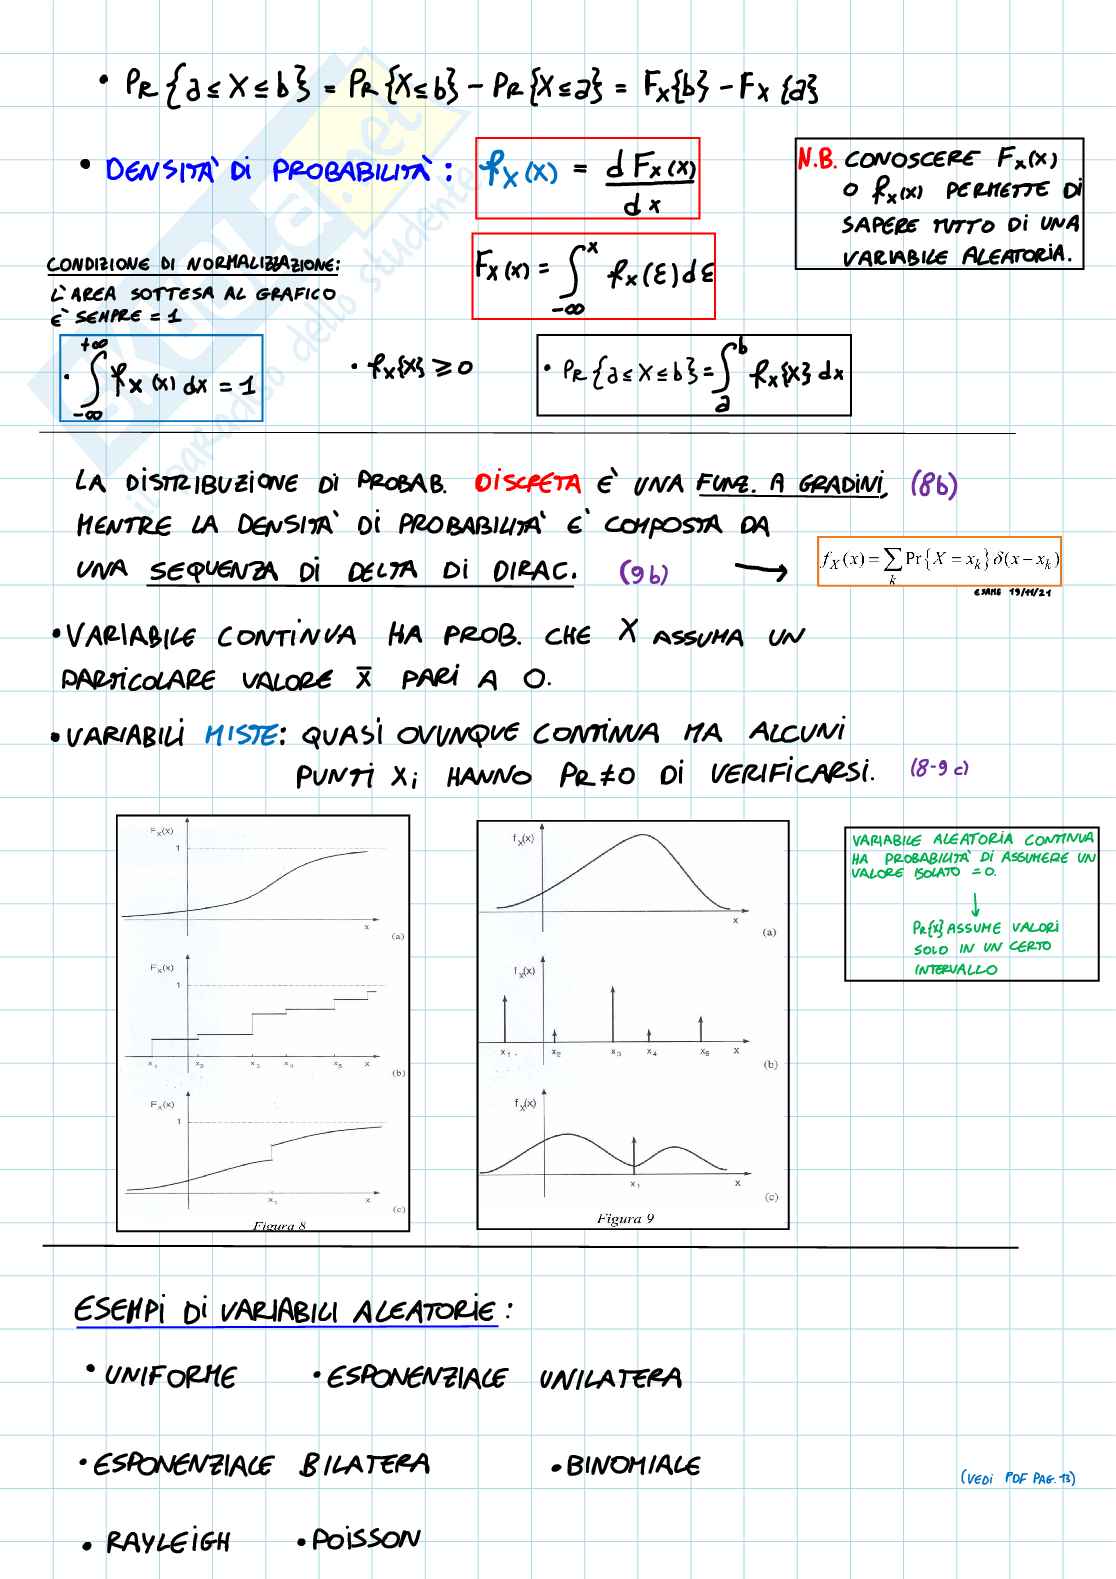 • PR{a≤X≤b} = PR{X≤b} - PR{X≤a} = FX{b} - FX{a}
• DENSITÀ DI PROBABILITÀ: fX(x) = dFX(x)/dx
N.B. CONOSCERE FX(x)
O fX(x) PERMETTE DI
SAPERE TUTTO DI UNA
VARIABILE ALEATORIA.
FX(x) = ∫_{-∞}^{x} fX(ε)dε
CONDIZIONE DI NORMALIZZAZIONE:
L'AREA SOTTESA AL GRAFICO
E' SEMPRE = 1
• ∫_{-∞}^{+∞} fX(x)dx = 1
• fX{X} ≥ 0
• PR{a≤X≤b} = ∫_{a}^{b} fX{X}dx
LA DISTRIBUZIONE DI PROBAB. DISCRETA E' UNA FUNZ. A GRADINI, (8b)
MENTRE LA DENSITA' DI PROBABILITA' E' COMPOSTA DA
UNA SEQUENZA DI DELTA DI DIRAC. (9b) →
fX(x) = ∑_k Pr{X = x_k} δ(x-x_k)
ESAME 19/11/21
• VARIABILE CONTINUA HA PROB. CHE X ASSUMA UN
PARTICOLARE VALORE x̄ PARI A 0.
• VARIABILI MISTE: QUASI OVUNQUE CONTINUA MA ALCUNI
PUNTI Xi HANNO PR≠0 DI VERIFICARSI. (8-9 c)
FX(x)
1
x
(a)
FX(x)
1
x1 x2 x3 x4 x5 x
(b)
FX(x)
1
x1 x
(c)
Figura 8
fX(x)
x
(a)
fX(x)
x1 x2 x3 x4 x5 x
(b)
fX(x)
x1 x
(c)
Figura 9
VARIABILE ALEATORIA CONTINUA
HA PROBABILITA' DI ASSUMERE UN
VALORE ISOLATO = 0.
↓
PR{X} ASSUME VALORI
SOLO IN UN CERTO
INTERVALLO
ESEMPI DI VARIABILI ALEATORIE:
• UNIFORME • ESPONENZIALE UNILATERA
• ESPONENZIALE BILATERA • BINOMIALE
(VEDI PDF PAG. 13)
• RAYLEIGH • POISSON
il paradiso dello studente